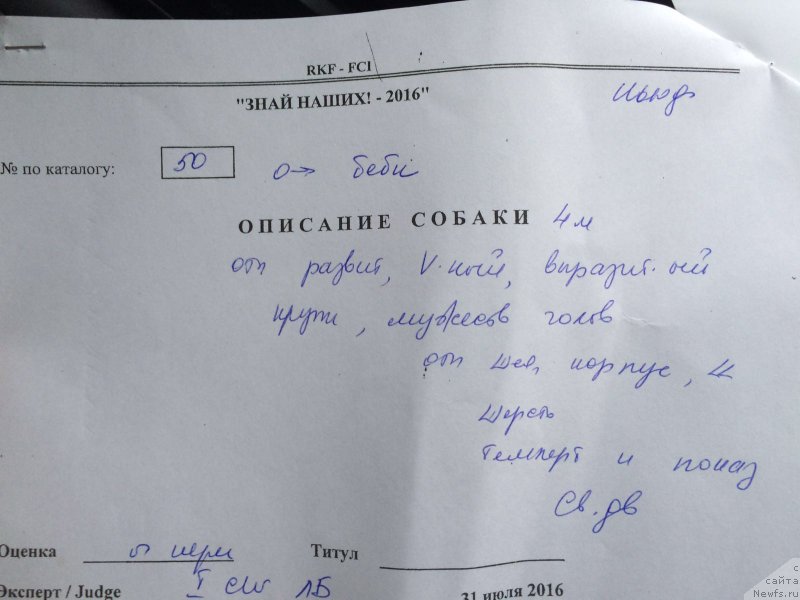 RKF - FCI
"ЗНАЙ НАШИХ! - 2016"
Ньюф
№ по каталогу: 50 беби
ОПИСАНИЕ СОБАКИ 4м
отл развит, V-ный, выразит-ый
крупн, мужеств голов
отл шея, корпус,
шерсть
темперт и показ
Св. дв
Оценка
Титул
Эксперт / Judge I СМ ЛБ
31 июля 2016
с
сайта
Newfs.ru